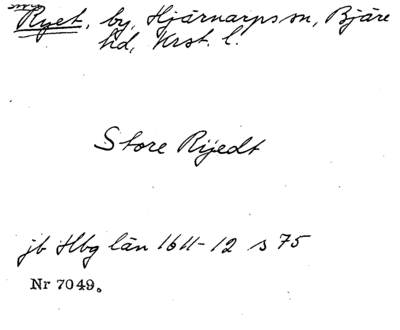 Ryet, by, Hjärnarps sn, Bjäre
hd, Krst. l.
Store Rijedt
jb Hbg län 1611-12 s 75
Nr 7049.